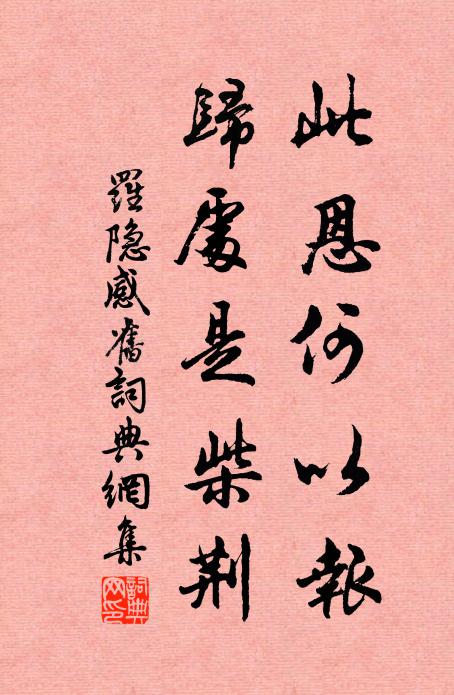 此恩何以報
歸處是柴荆
羅隐感舊詞典網集
詞典網印